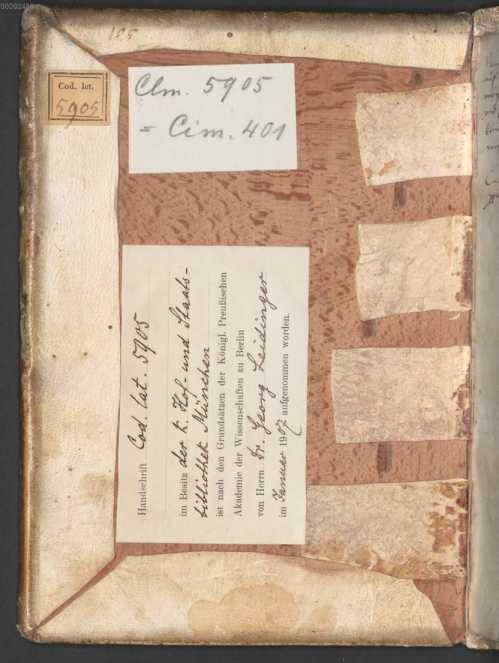 00002406
105
Cod. lat.
5905
Clm. 5905
= Cim. 401
Handschrift Cod. lat. 5905
im Besitz der K. Hof- und Staats-
bibliothek München
ist nach den Grundsätzen der Königl. Preußischen
Akademie der Wissenschaften zu Berlin
von Herrn Dr. Georg Leidinger
im Januar 1907 aufgenommen worden.